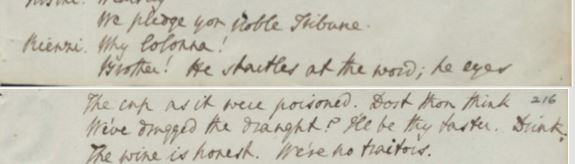 We pledge you noble Tribune.
Rienzi. Why Colonna!
Brother! He startles at the word; he eyes
The cup as it were poisoned. Dost thou think 216
We've drugged the draught? I'll be thy taster. Drink.
The wine is honest. We're no traitors.